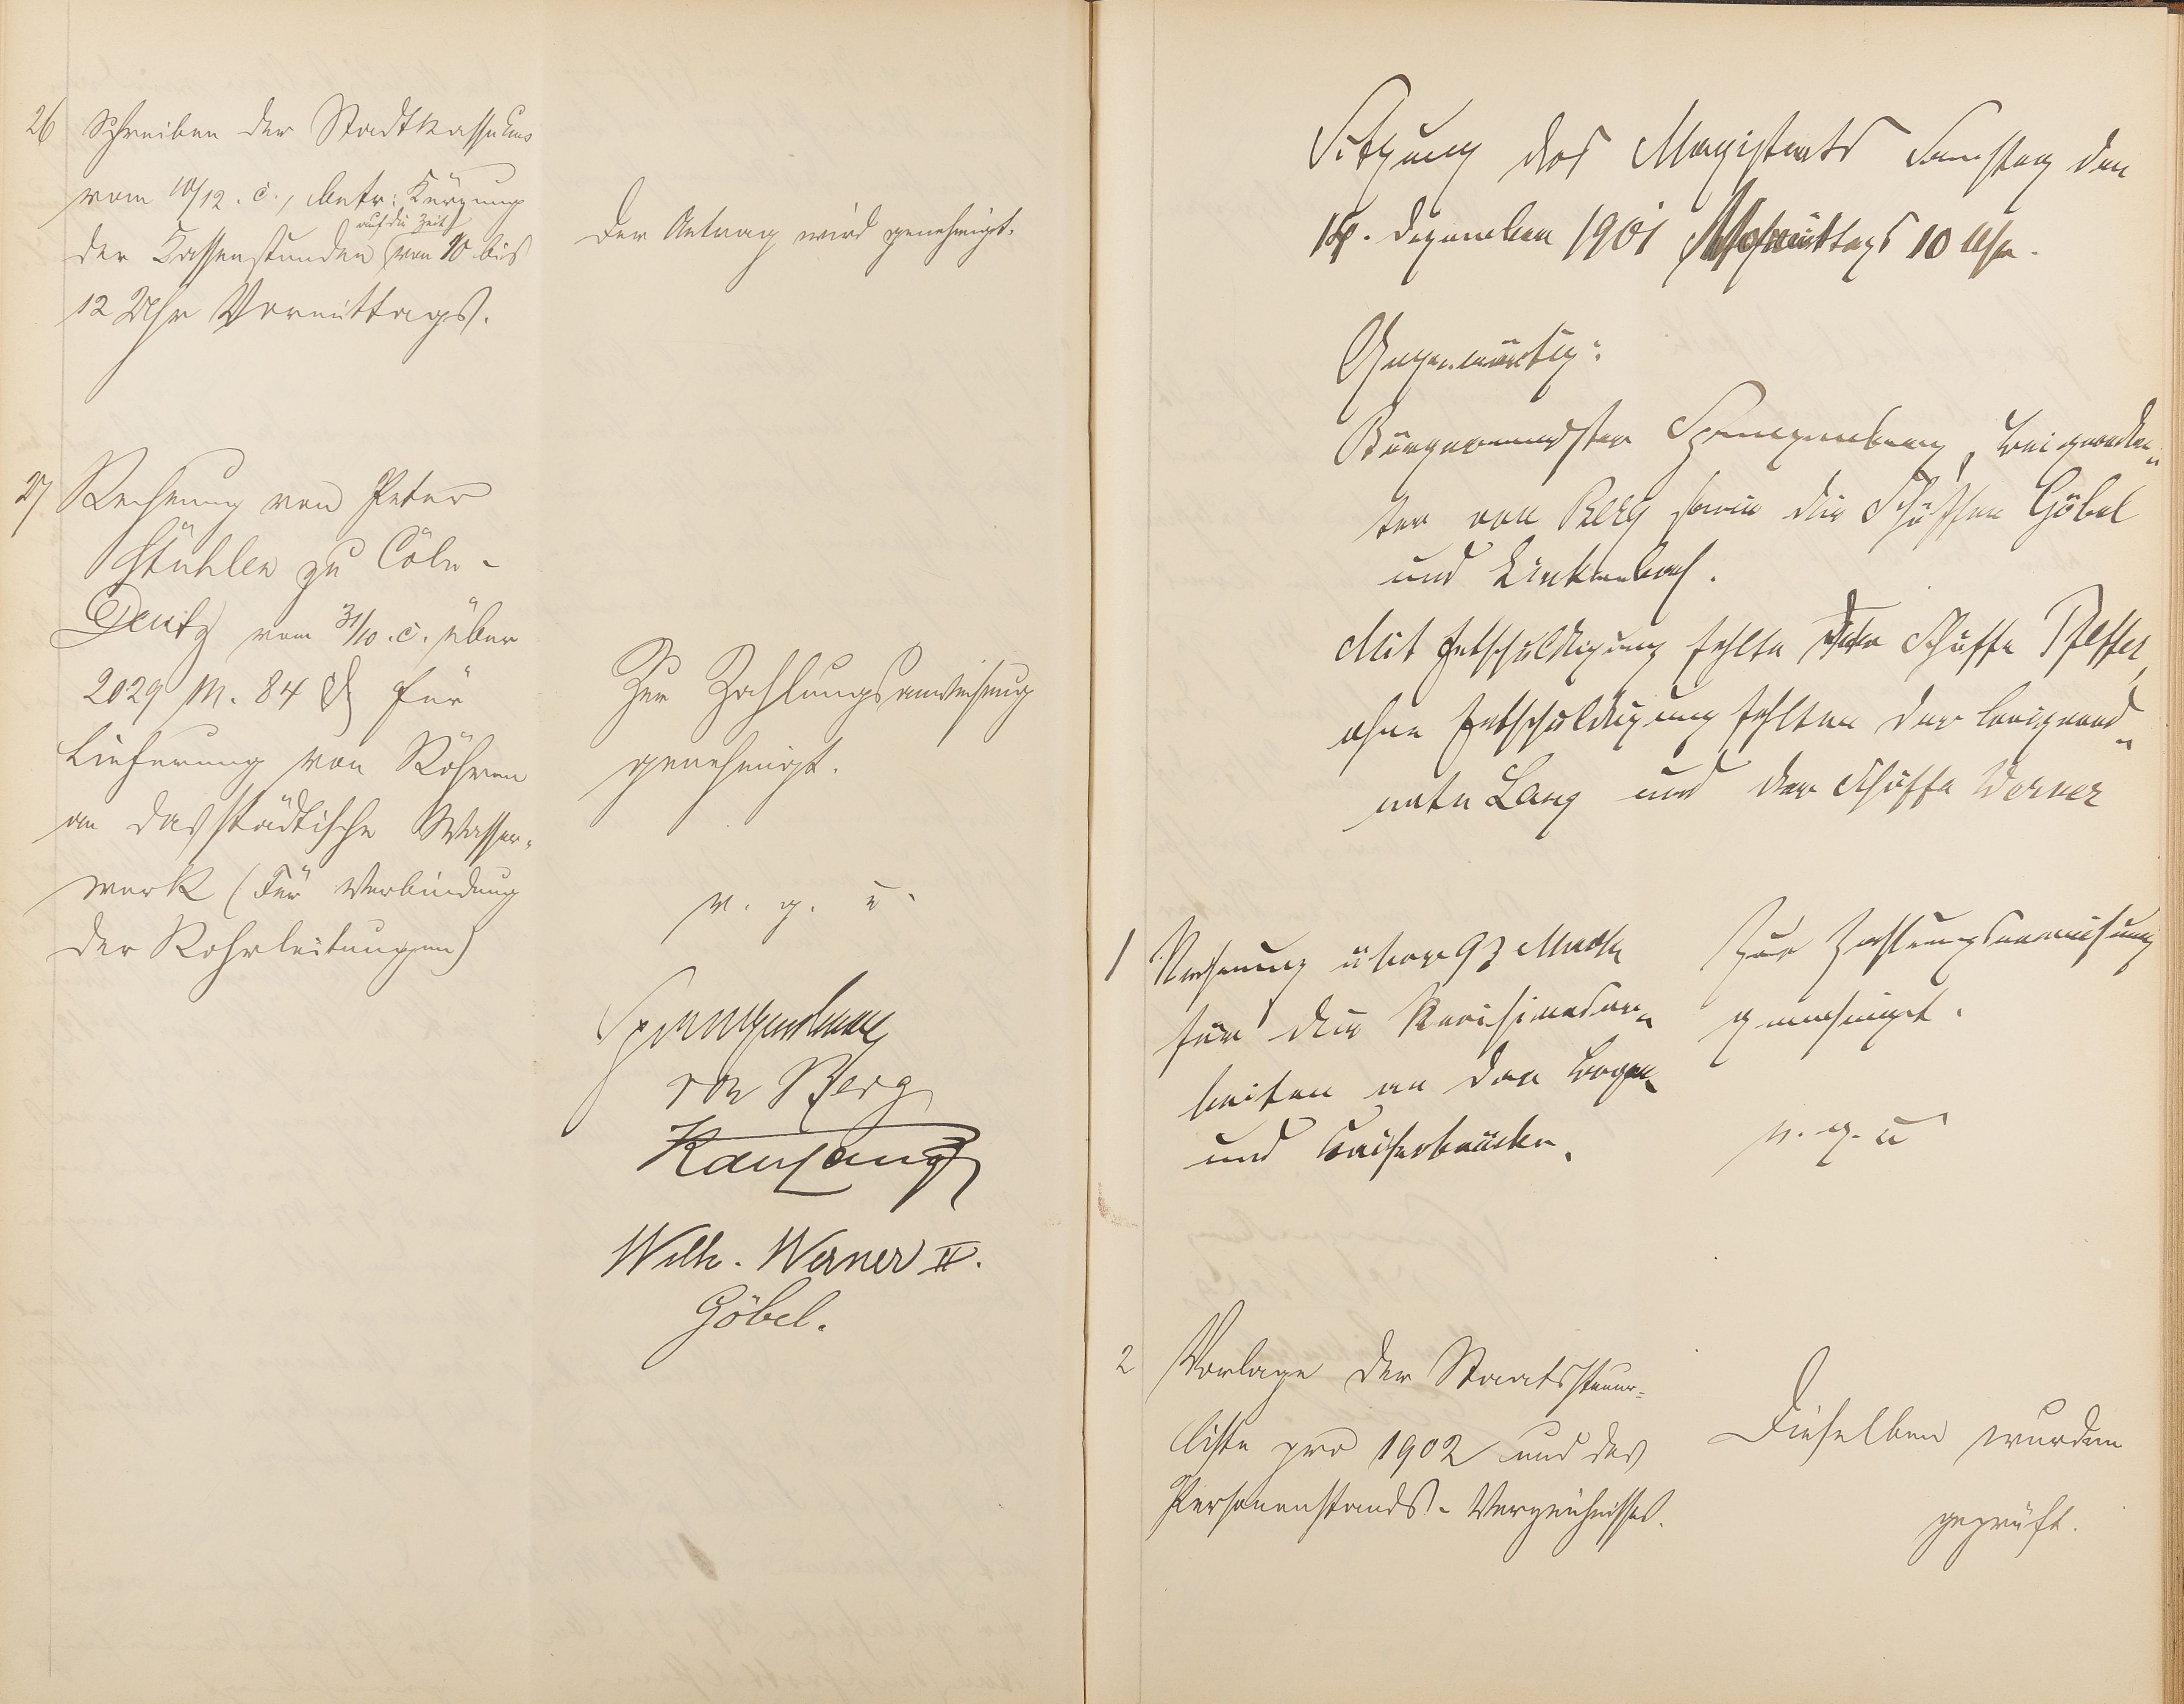 26
Schreiben der Stadtkasse
vom 10/12. c., betr: Kürzung
auf die Zeit
der Kassenstunden von 10 bis
12 Uhr Vormittags.
Der Antrag wird genehmigt.
27
Rechnung von Peter
Stühlen zu Cöln-
Deutz vom 31/10. c. über
2029 M. 84 ₰ für
Lieferung von Röhren
an das städtische Wasser-
werk (Für Verbindung
der Rohrleitungen)
Zur Zahlungsanweisung
genehmigt.
v. g. u.
Spangenberg
von Berg
Karl Lang
Wilh. Werner II.
Göbel.
Sitzung des Magistrats Samstag den
Dezember 1901 Vormittags 10 Uhr.
Gegenwärtig:
Bürgermeister Spangenberg, Beigeordne-
ter von Berg sowie die Schöffen Göbel
und Linkenbach.
Mit Entschuldigung fehlte der Schöffe Pfeffer,
ohne Entschuldigung fehlten der Beigeord-
nete Lang und der Schöffe Werner
1
Rechnung über 93 Mark
für die Revisionsar-
beiten an der
und Kaiserbrücke.
Zur Zahlungsanweisung
genehmigt.
v. g. u
2
Vorlage der Staatssteuer-
liste pro 1902 und des
Personenstands-Verzeichnisses.
Dieselben wurden
geprüft.